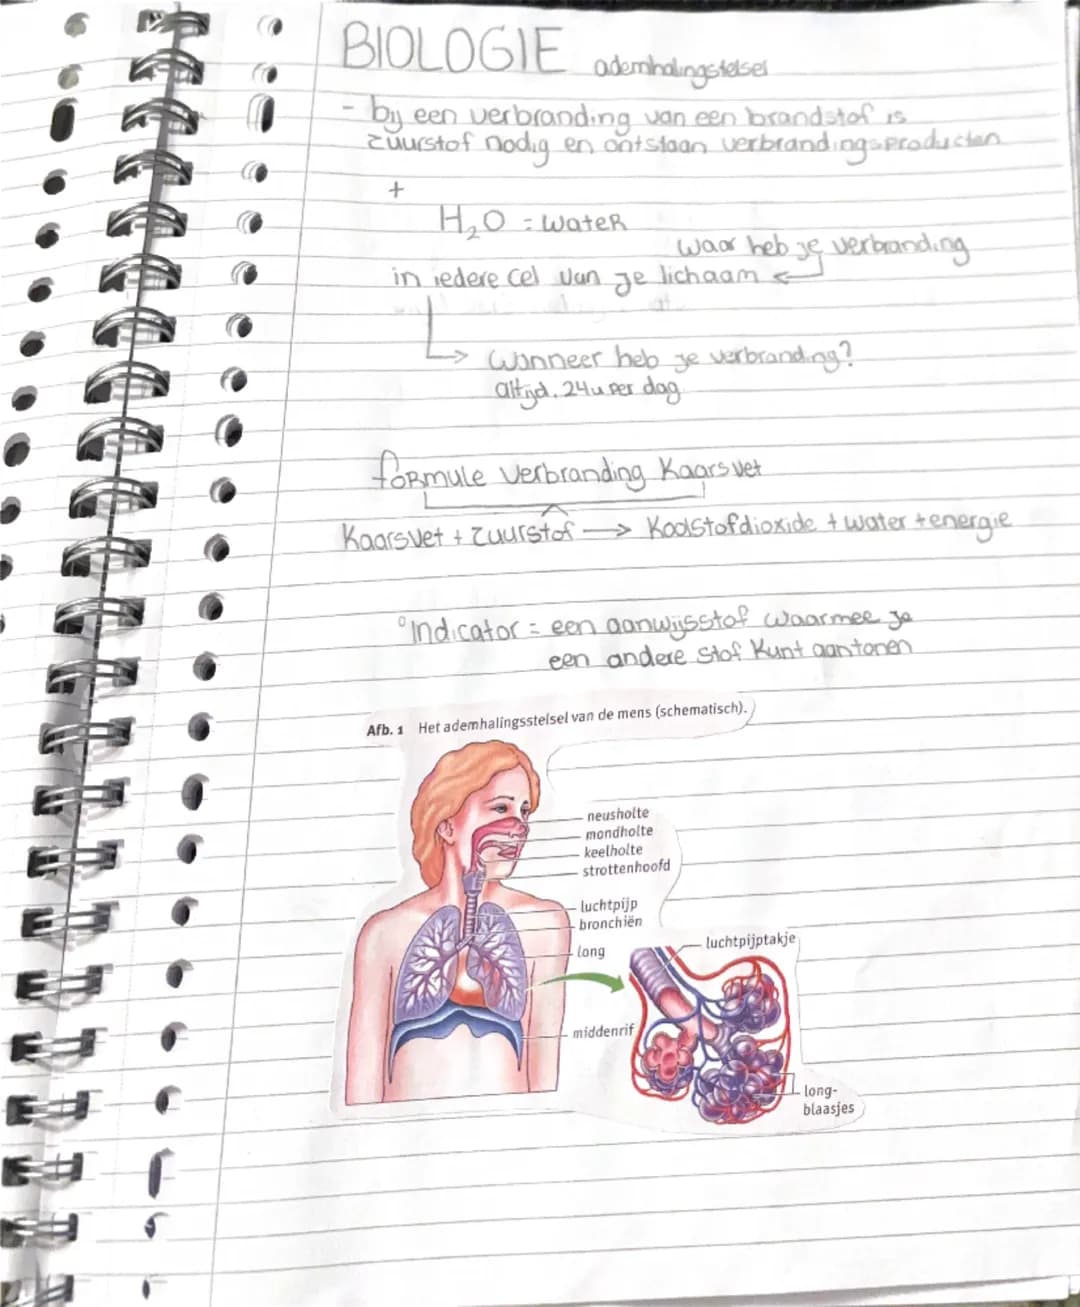 BIOLOGIE ademhalingstelsel
- bij een verbranding van een brandstof is
zuurstof nodig en ontstaan verbrandingsproducten
+
H₂O = water
waar heb je verbranding
in iedere cel van je lichaam
Wanneer heb je verbranding?
altijd. 24u per dag
formule verbranding kaarsvet
Kaarsvet + zuurstof → Koolstofdioxide + water + energie
°Indicator = een aanwijsstof waarmee je
een andere stof kunt aantonen
Afb. 1 Het ademhalingsstelsel van de mens (schematisch).
neusholte
mondholte
keelholte
strottenhoofd
luchtpijp
bronchiën
long
luchtpijptakje
middenrif
long-
blaasjes